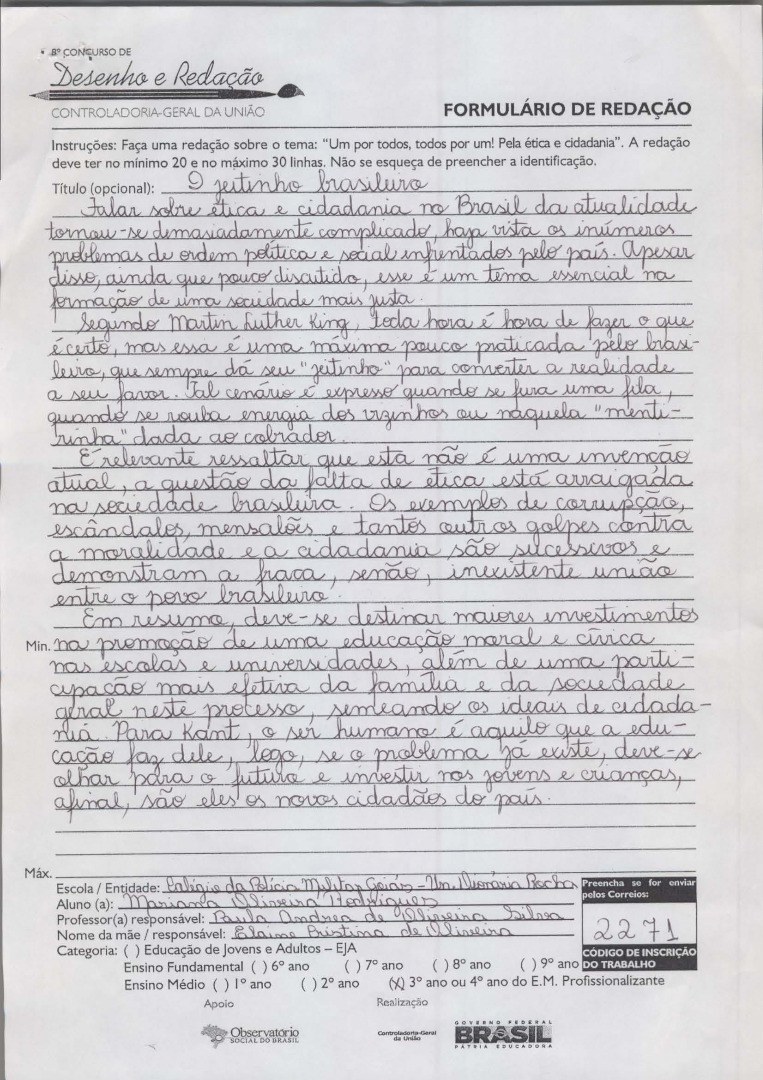 8º CONCURSO DE
Desenho e Redação
CONTROLADORIA-GERAL DA UNIÃO
FORMULÁRIO DE REDAÇÃO
Instruções: Faça uma redação sobre o tema: "Um por todos, todos por um! Pela ética e cidadania". A redação
deve ter no mínimo 20 e no máximo 30 linhas. Não se esqueça de preencher a identificação.
Título (opcional): O jeitinho brasileiro
Falar sobre ética e cidadania no Brasil da atualidade
tornou-se demasiadamente complicado, haja vista os inúmeros
problemas de ordem política e social enfrentados pelo país. Apesar
disso, ainda que pouco discutido, esse é um tema essencial na
formação de uma sociedade mais justa.
Segundo Martin Luther King, toda hora é hora de fazer o que
é certo, mas essa é uma máxima pouco praticada pelo brasi-
leiro, que sempre dá seu "jeitinho" para converter a realidade
a seu favor. Tal cenário é expresso quando se fura uma fila,
quando se rouba energia dos vizinhos ou naquela "menti-
rinha" dada ao cobrador.
É relevante ressaltar que esta não é uma invenção
atual, a questão da falta de ética está arraigada
na sociedade brasileira. Os exemplos de corrupção,
escândalos, mensalões e tantos outros golpes contra
a moralidade e a cidadania são sucessivos e
demonstram a fraca, senão, inexistente união
entre o povo brasileiro.
Em resumo, deve-se destinar maiores investimentos
Min. na promoção de uma educação moral e cívica
nas escolas e universidades, além de uma parti-
cipação mais efetiva da família e da sociedade
geral neste processo, semeando os ideais de cidada-
nia. Para Kant, o ser humano é aquilo que a edu-
cação faz dele, logo, se o problema já existe, deve-se
olhar para o futuro e investir nos jovens e crianças,
afinal, são eles os novos cidadãos do país.
Máx.
Escola / Entidade: Colégio da Polícia Militar Goiás - Un. Rocha
Aluno (a): Mariama Oliveira Rodrigues
Professor(a) responsável: Paula Andrea de Oliveira Silva
Nome da mãe / responsável: Elaine Cristina de Oliveira
Preencha se for enviar
pelos Correios:
2271
CÓDIGO DE INSCRIÇÃO
DO TRABALHO
Categoria: ( ) Educação de Jovens e Adultos – EJA
Ensino Fundamental ( ) 6º ano ( ) 7º ano ( ) 8º ano ( ) 9º ano
Ensino Médio ( ) 1º ano ( ) 2º ano (X) 3º ano ou 4º ano do E.M. Profissionalizante
Apoio Realização
Observatório
SOCIAL DO BRASIL
Controladoria-Geral
da União
GOVERNO FEDERAL
BRASIL
PÁTRIA EDUCADORA